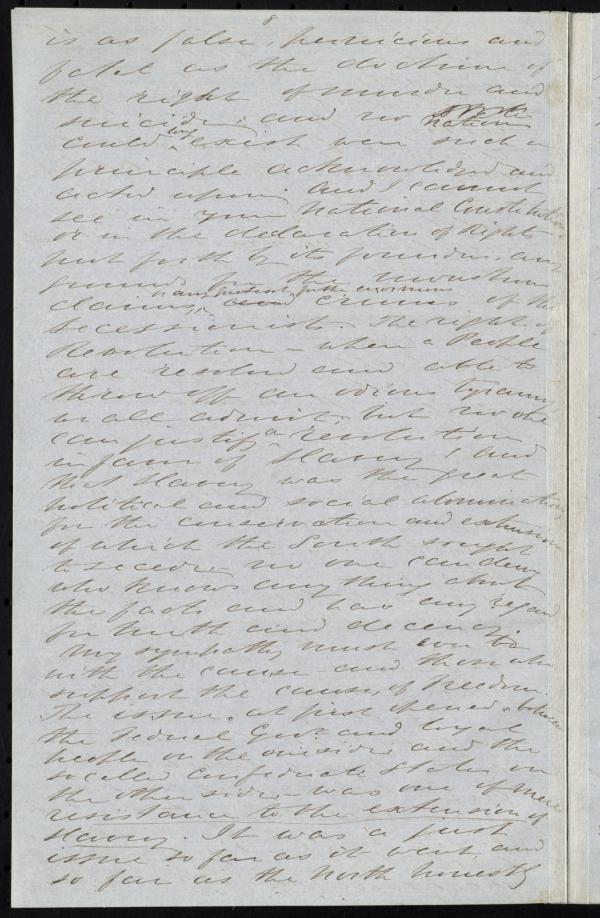 8
is as false, pernicious and
fatal as the doctrine of
the right of murder and
suicide; and no nation
could long exist were such a
principle acknowledged and
acted upon. and I cannot
see in your National Constitution
or in the declaration of Rights
put forth by its founders, any
ground for the monstrous
or any pretext for the enormous
claims, and crimes of the
Secessionists. The right of
Revolution – when a People
are resolved and able to
throw off an odious tyranny,
we all admit, but no one
can justify a revolution
in favor of Slavery! and
that Slavery was the great
political and social abomination
for the conservation and extension
of which the South sought
to secede, no one can deny
who knows anything about
the facts and has any regard
for truth and decency.
My sympathy must ever be
with the cause and those who
support the cause, of Freedom.
The issue, at first opened, between
the Federal Govt and loyal
people on the one side and the
so called Confederate States on
the other side – was one of mere
resistance to the extension of
slavery. It was a just
issue so far as it went, and
so far as the North honestly